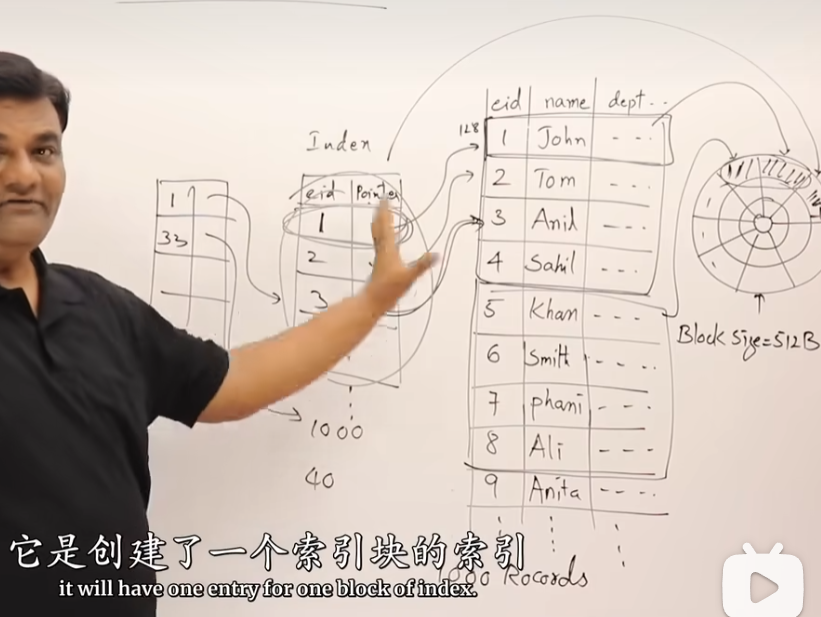 Index
eid Pointer
1
2
3
1000
40
1
33
128
eid name dept..
1 John ---
2 Tom ---
3 Anil ---
4 Sahil ---
5 Khan ---
6 Smith ---
7 phani ---
8 Ali ---
9 Anita ----
Records
Block Size=512B
它是创建了一个索引块的索引
it will have one entry for one block of index.